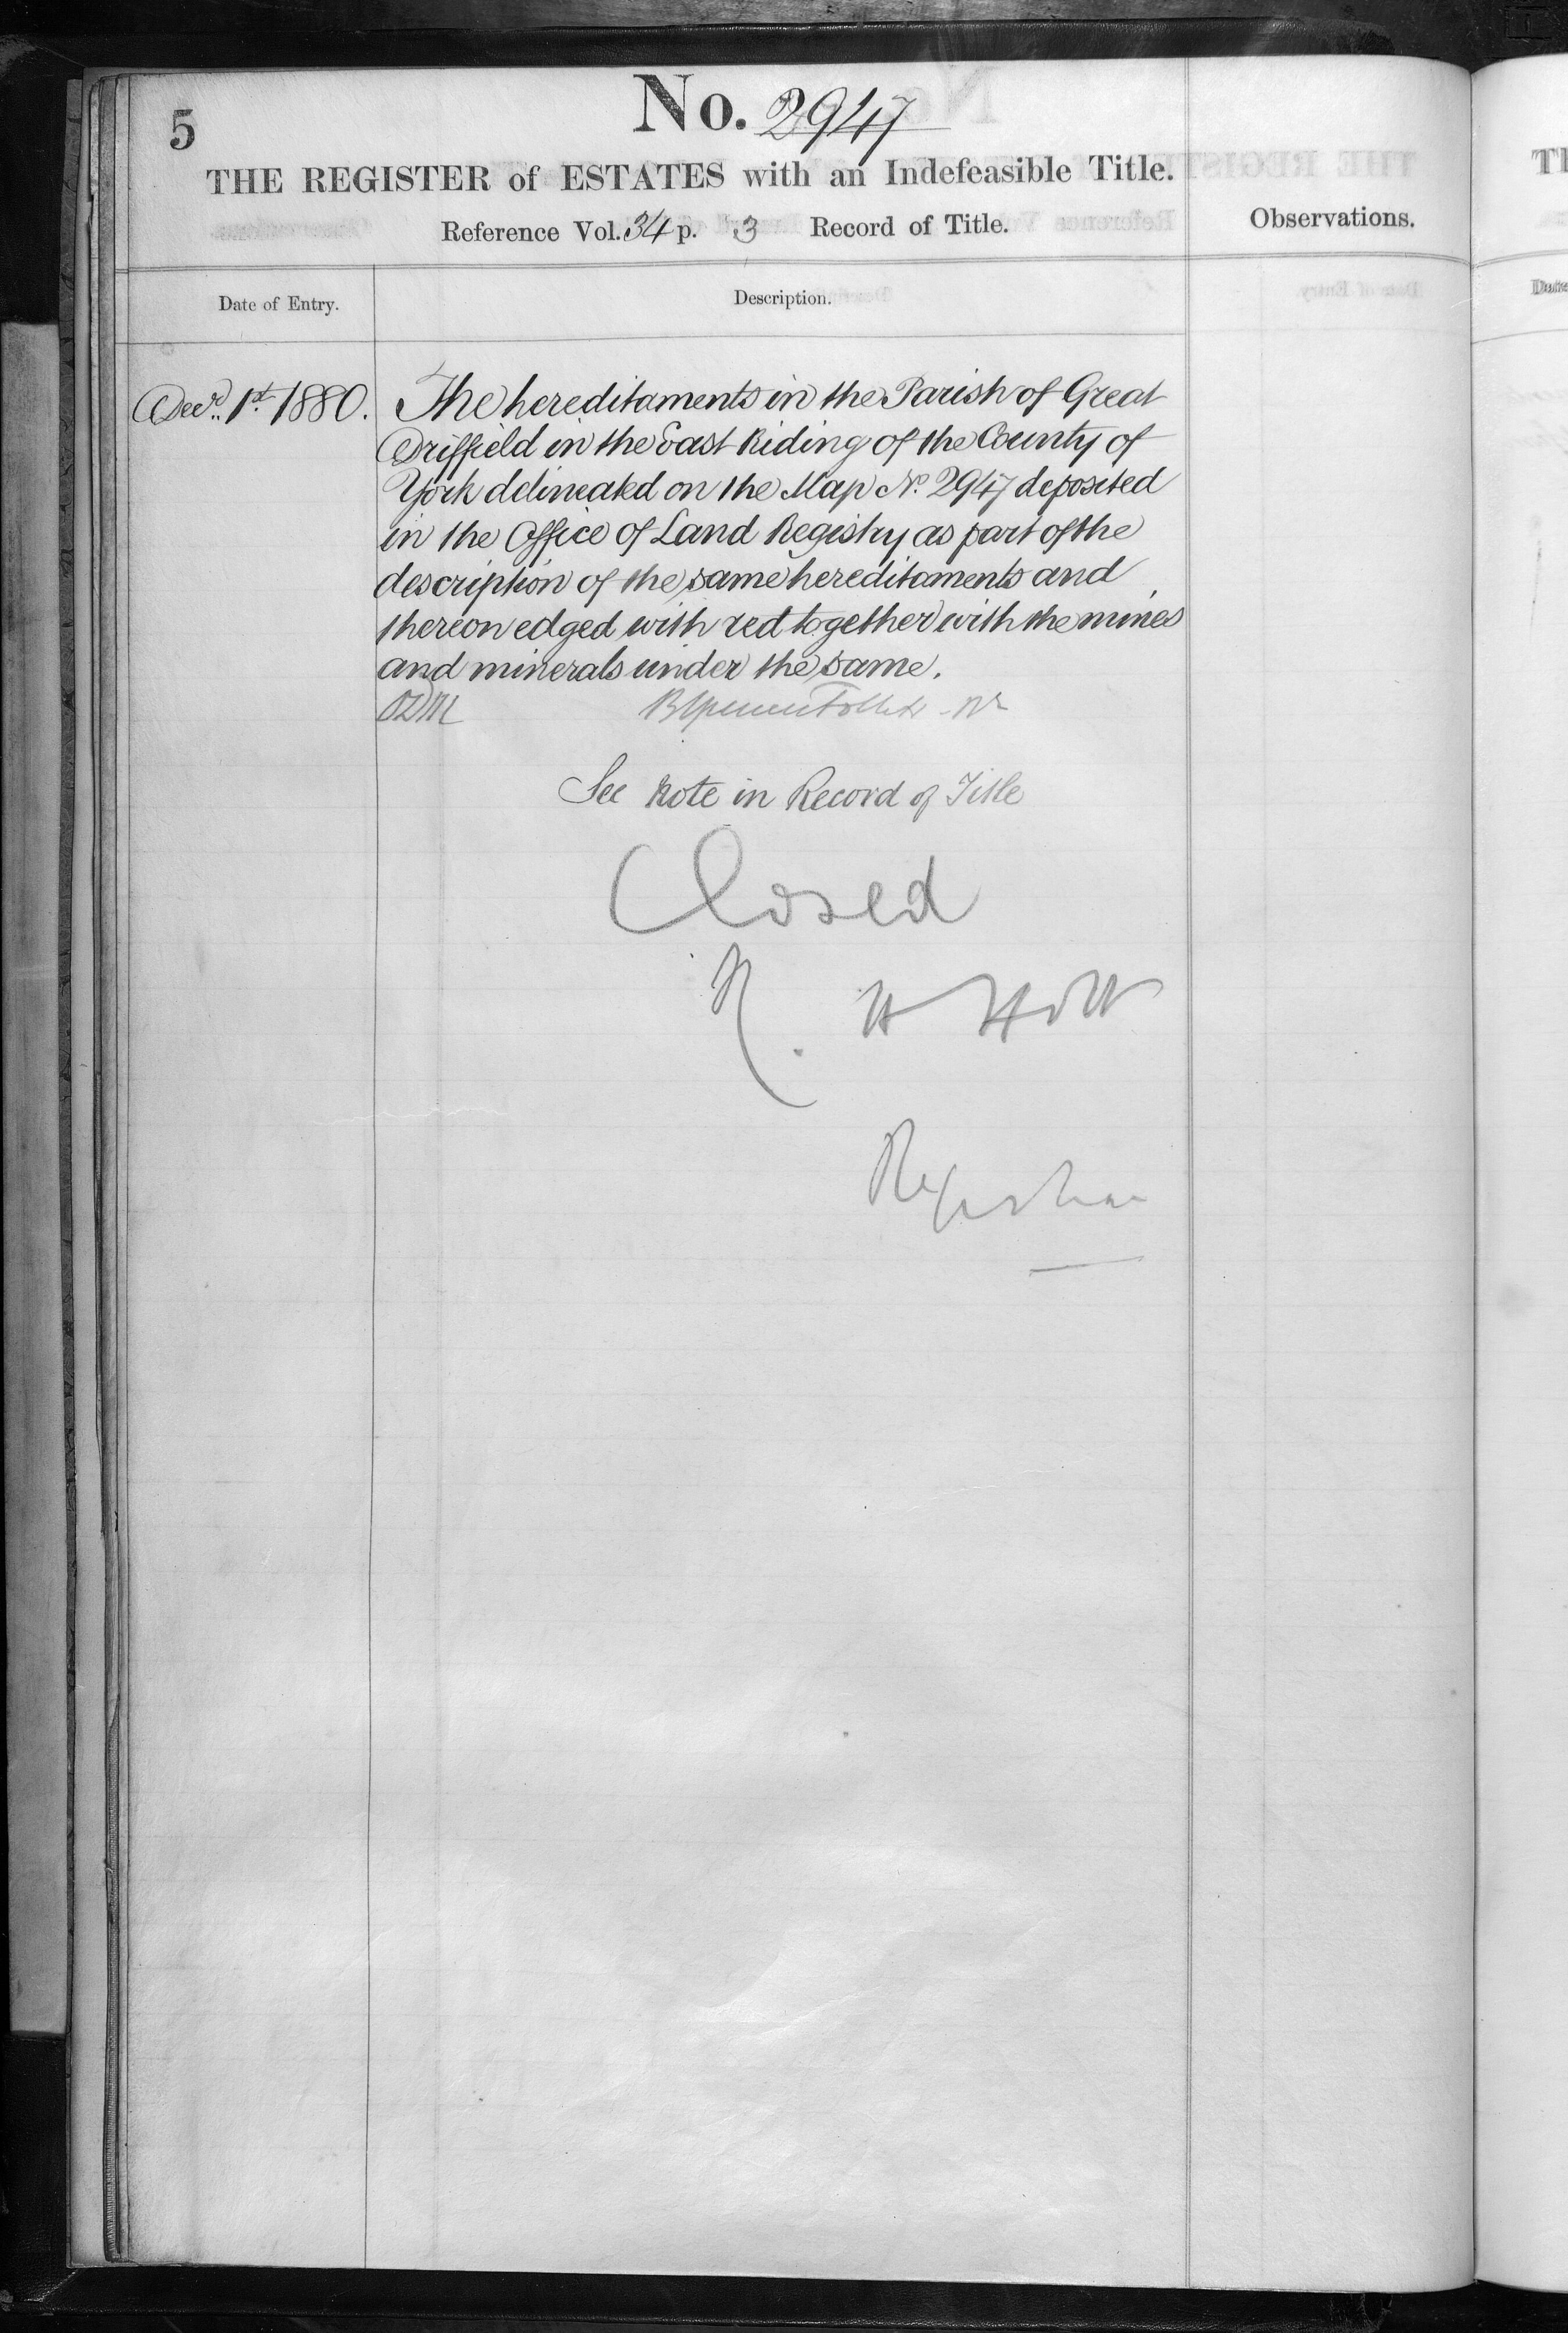 5
No. 2947
THE REGISTER of ESTATES with an Indefeasible Title.
Reference Vol. 34 p. 3 Record of Title.
Observations.
Date of Entry.
Description.
Decr. 1st 1880.
The hereditaments in the Parish of Great
Driffield in the East Riding of the County of
York delineated on the Map No. 2947 deposited
in the Office of Land Registry as part of the
description of the same hereditaments and
thereon edged with red together with the mines
and minerals under the same.
See Note in Record of Title
Closed
R. H Holt
Registrar